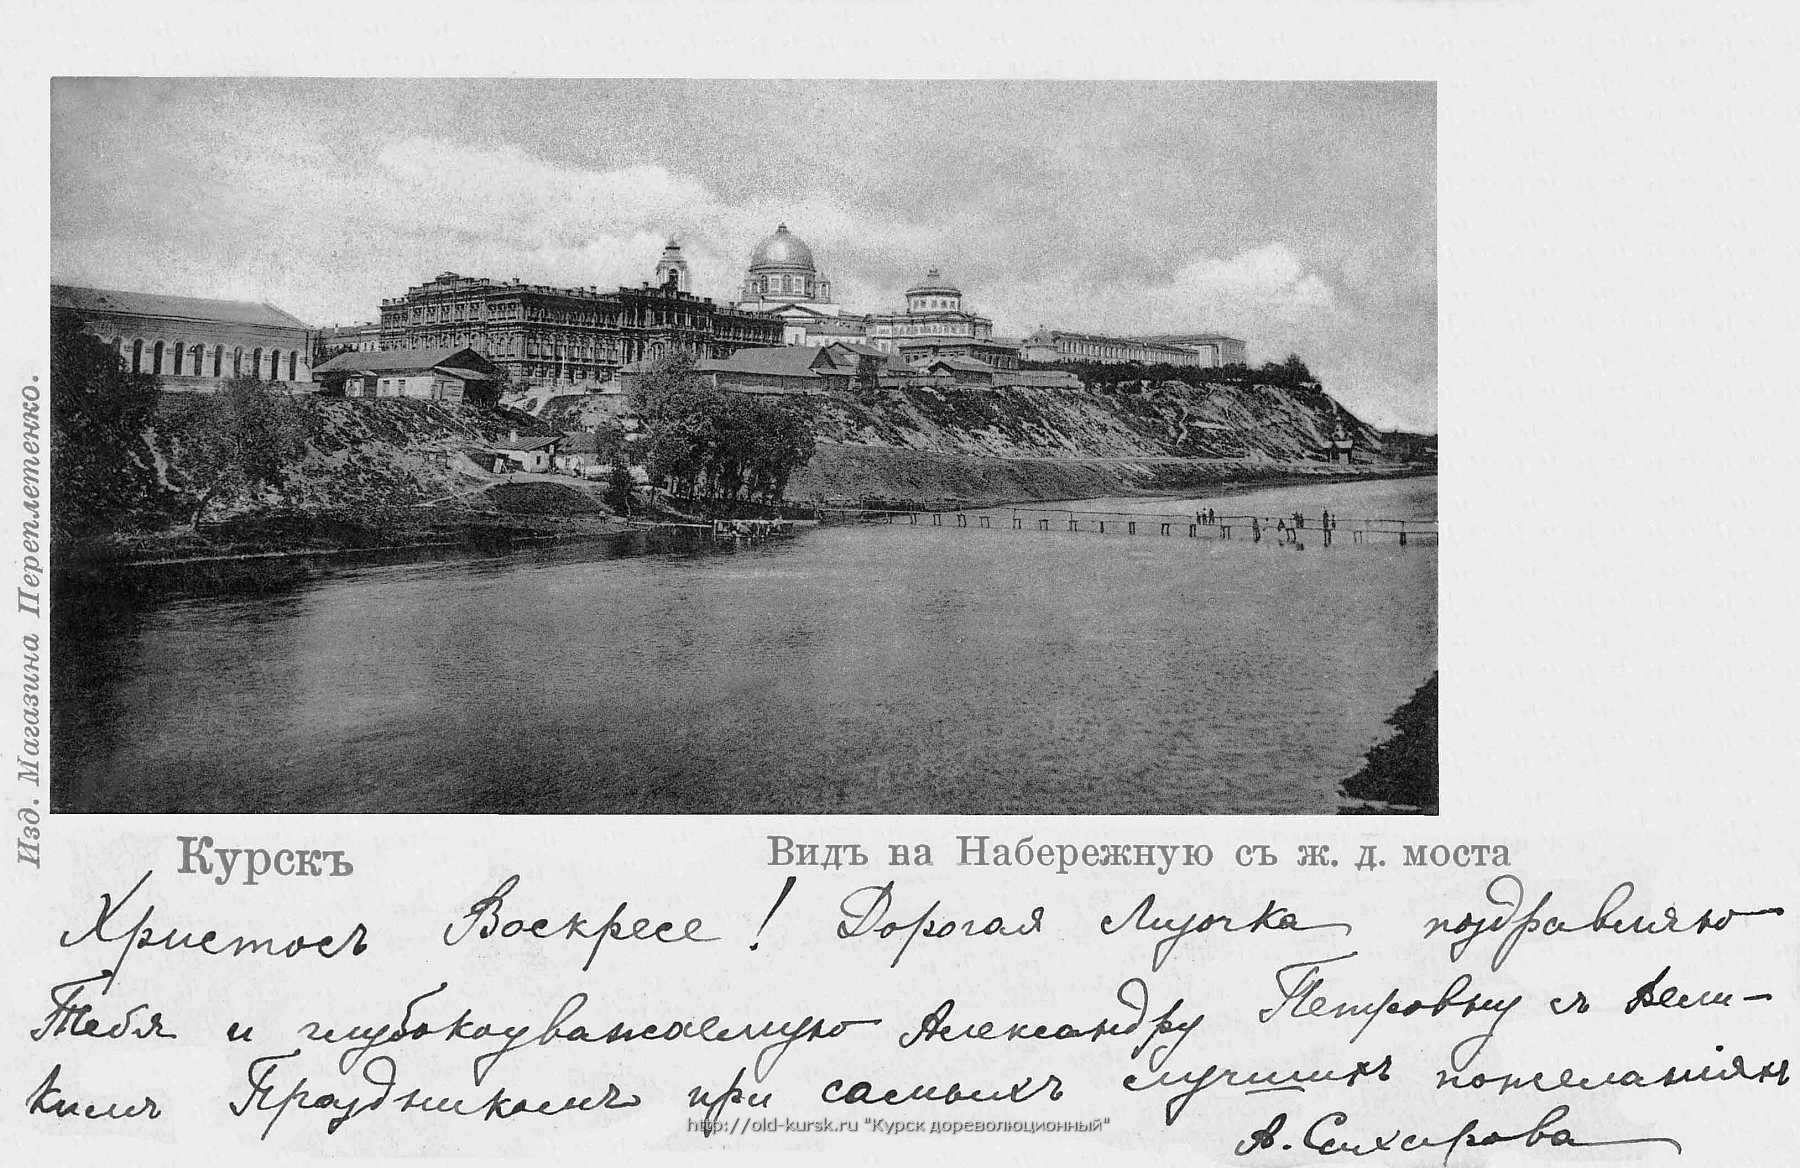 Изд. Магазина Переплетенко.
Курскъ
Видъ на Набережную съ ж. д. моста
Христосъ Воскресе! Дорогая поздравляю
Тебя и глубокоуважаемую Александру Петровну съ Вели-
кимъ Праздникомъ при самыхъ лучшихъ пожеланіяхъ
http://old-kursk.ru "Курск дореволюционный"
А. Сахарова